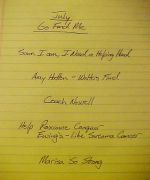 July
Go Fund Me
Sam I am, I Need a Helping Hand
Amy Hatten - Watkins Fund
Coach Nowell
Help Roxanne Conquer
Ewing's - Like Sarcoma Cancer
Marisa So Strong